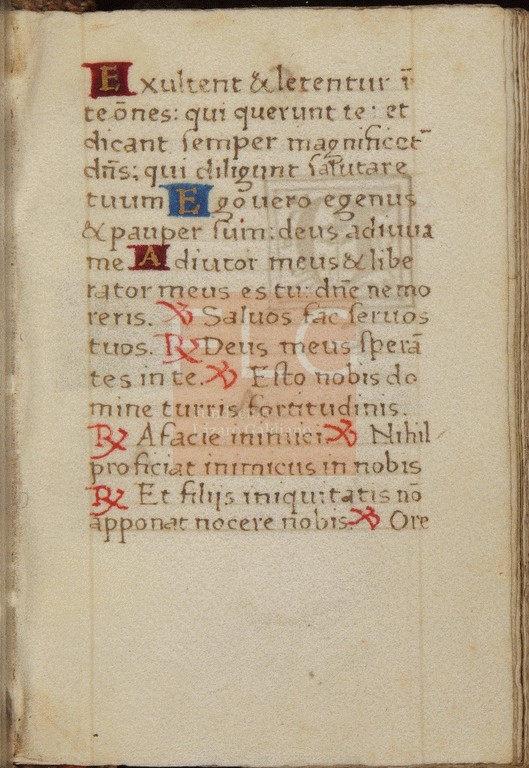 Exultent & letentur ī
te ōnes: qui querunt te: et
dicant semper magnificet̄
dn̄s; qui diligunt salutare
tuum Ego uero egenus
& pauper sum: deus adiuua
me Adiutor meus & libe
rator meus es tu: dn̄e ne mo
reris. ℣ Saluos fac seruos
tuos. ℟ Deus meus sperā
tes in te. ℣ Esto nobis do
mine turris fortitudinis.
℟ A facie inimici ℣ Nihil
proficiat inimicus in nobis
℟ Et filijs iniquitatis nō
apponat nocere nobis. ℣ Ore
Lázaro Galdiano